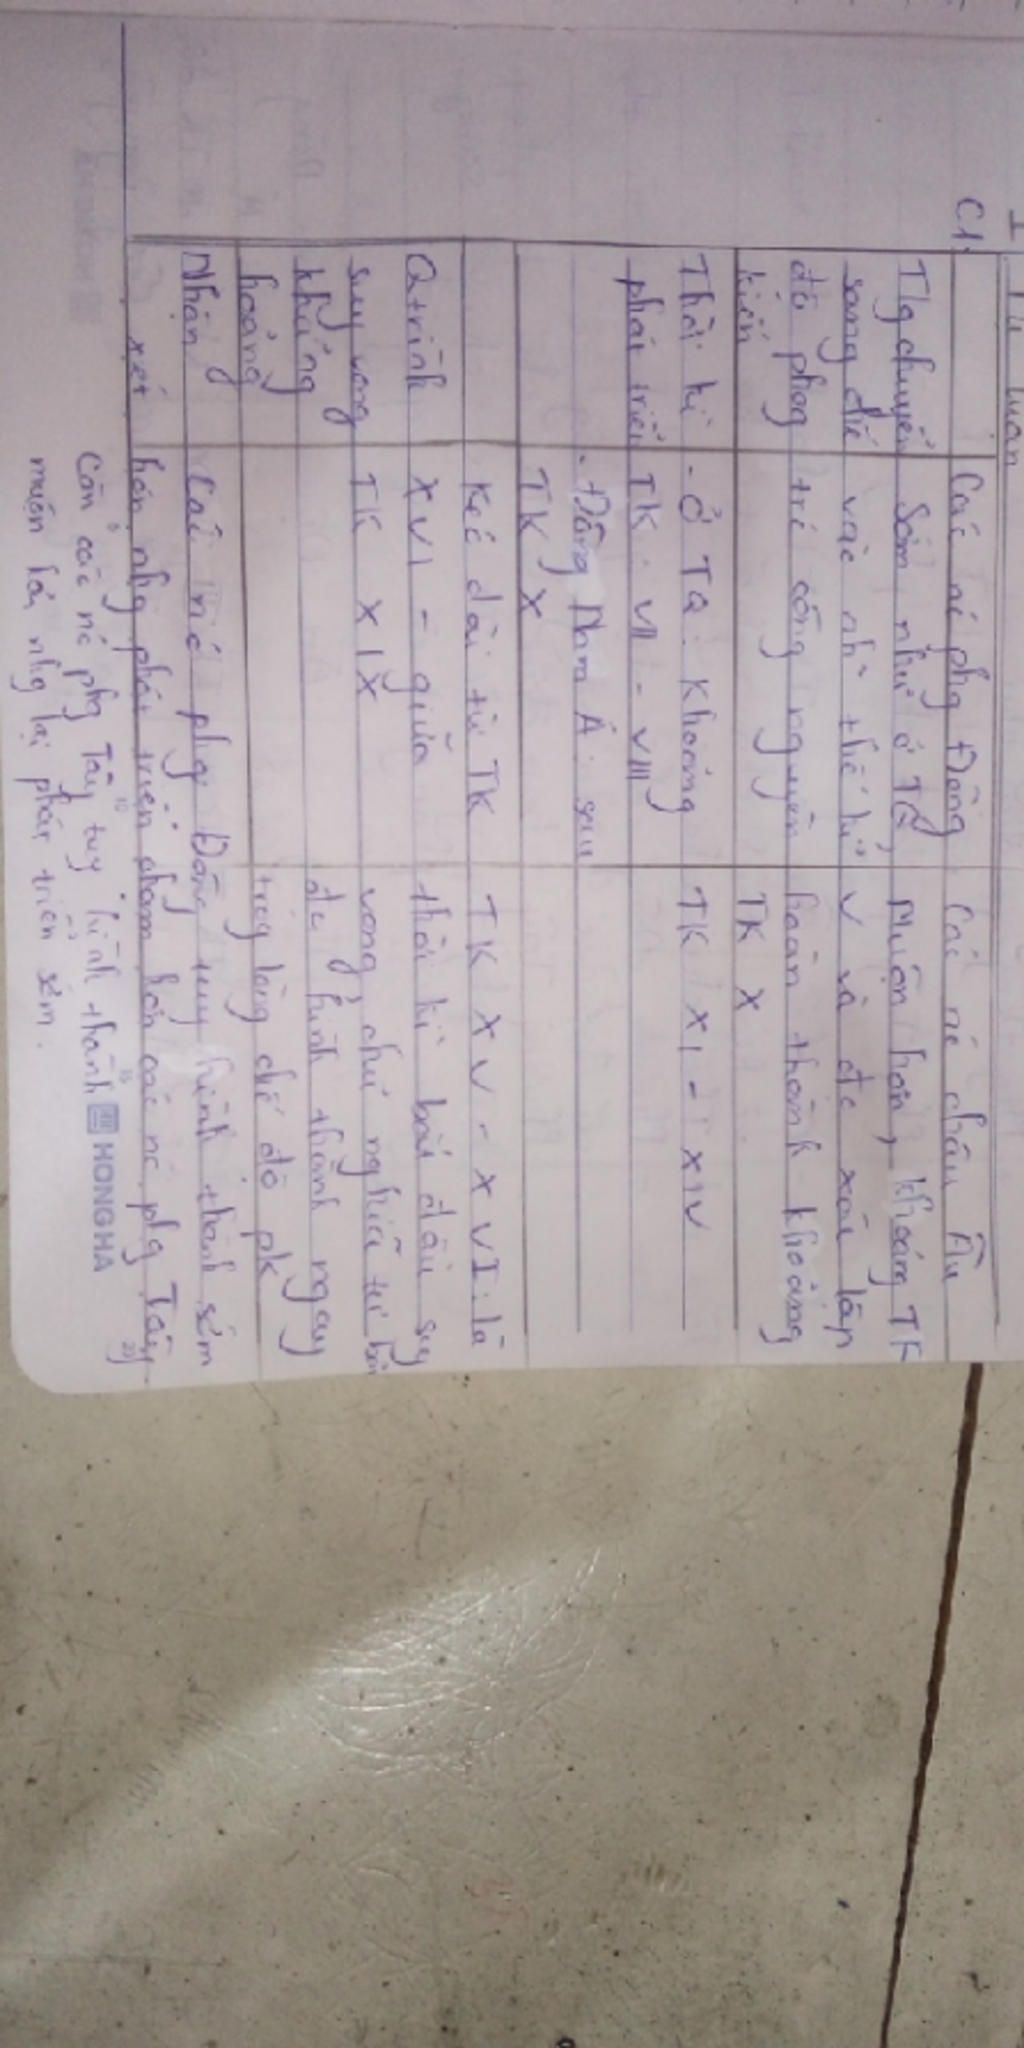 I Tự luận
C1:
Các nc phg Đông Các nc châu Âu
Tg chuyển Sớm như ở TQ, Muộn hơn, khoảng TK
sang chế vào nh~ thế kỉ V và đc xác lập
độ phog trc công nguyên hoàn thành khoảng
kiến TK X
Thời kì - Ở TQ: Khoảng TK XI - XIV
phát triển TK: VII - VIII
- Đông Nam Á: sau
TK X
Kéo dài từ TK TK XV - XVI: là
Q trình XVI - giữa thời kì bắt đầu suy
suy vong TK XIX vong, chủ nghĩa tư bản
khủng đc hình thành ngay
hoảng trog lòng chế độ pk
Nhận Các nc phg Đông tuy hình thành sớm
xét hơn nhg phát triển chậm hơn các nc phg Tây
Còn các nc phg Tây tuy hình thành HONG HA
muộn hơn nhg lại phát triển sớm.